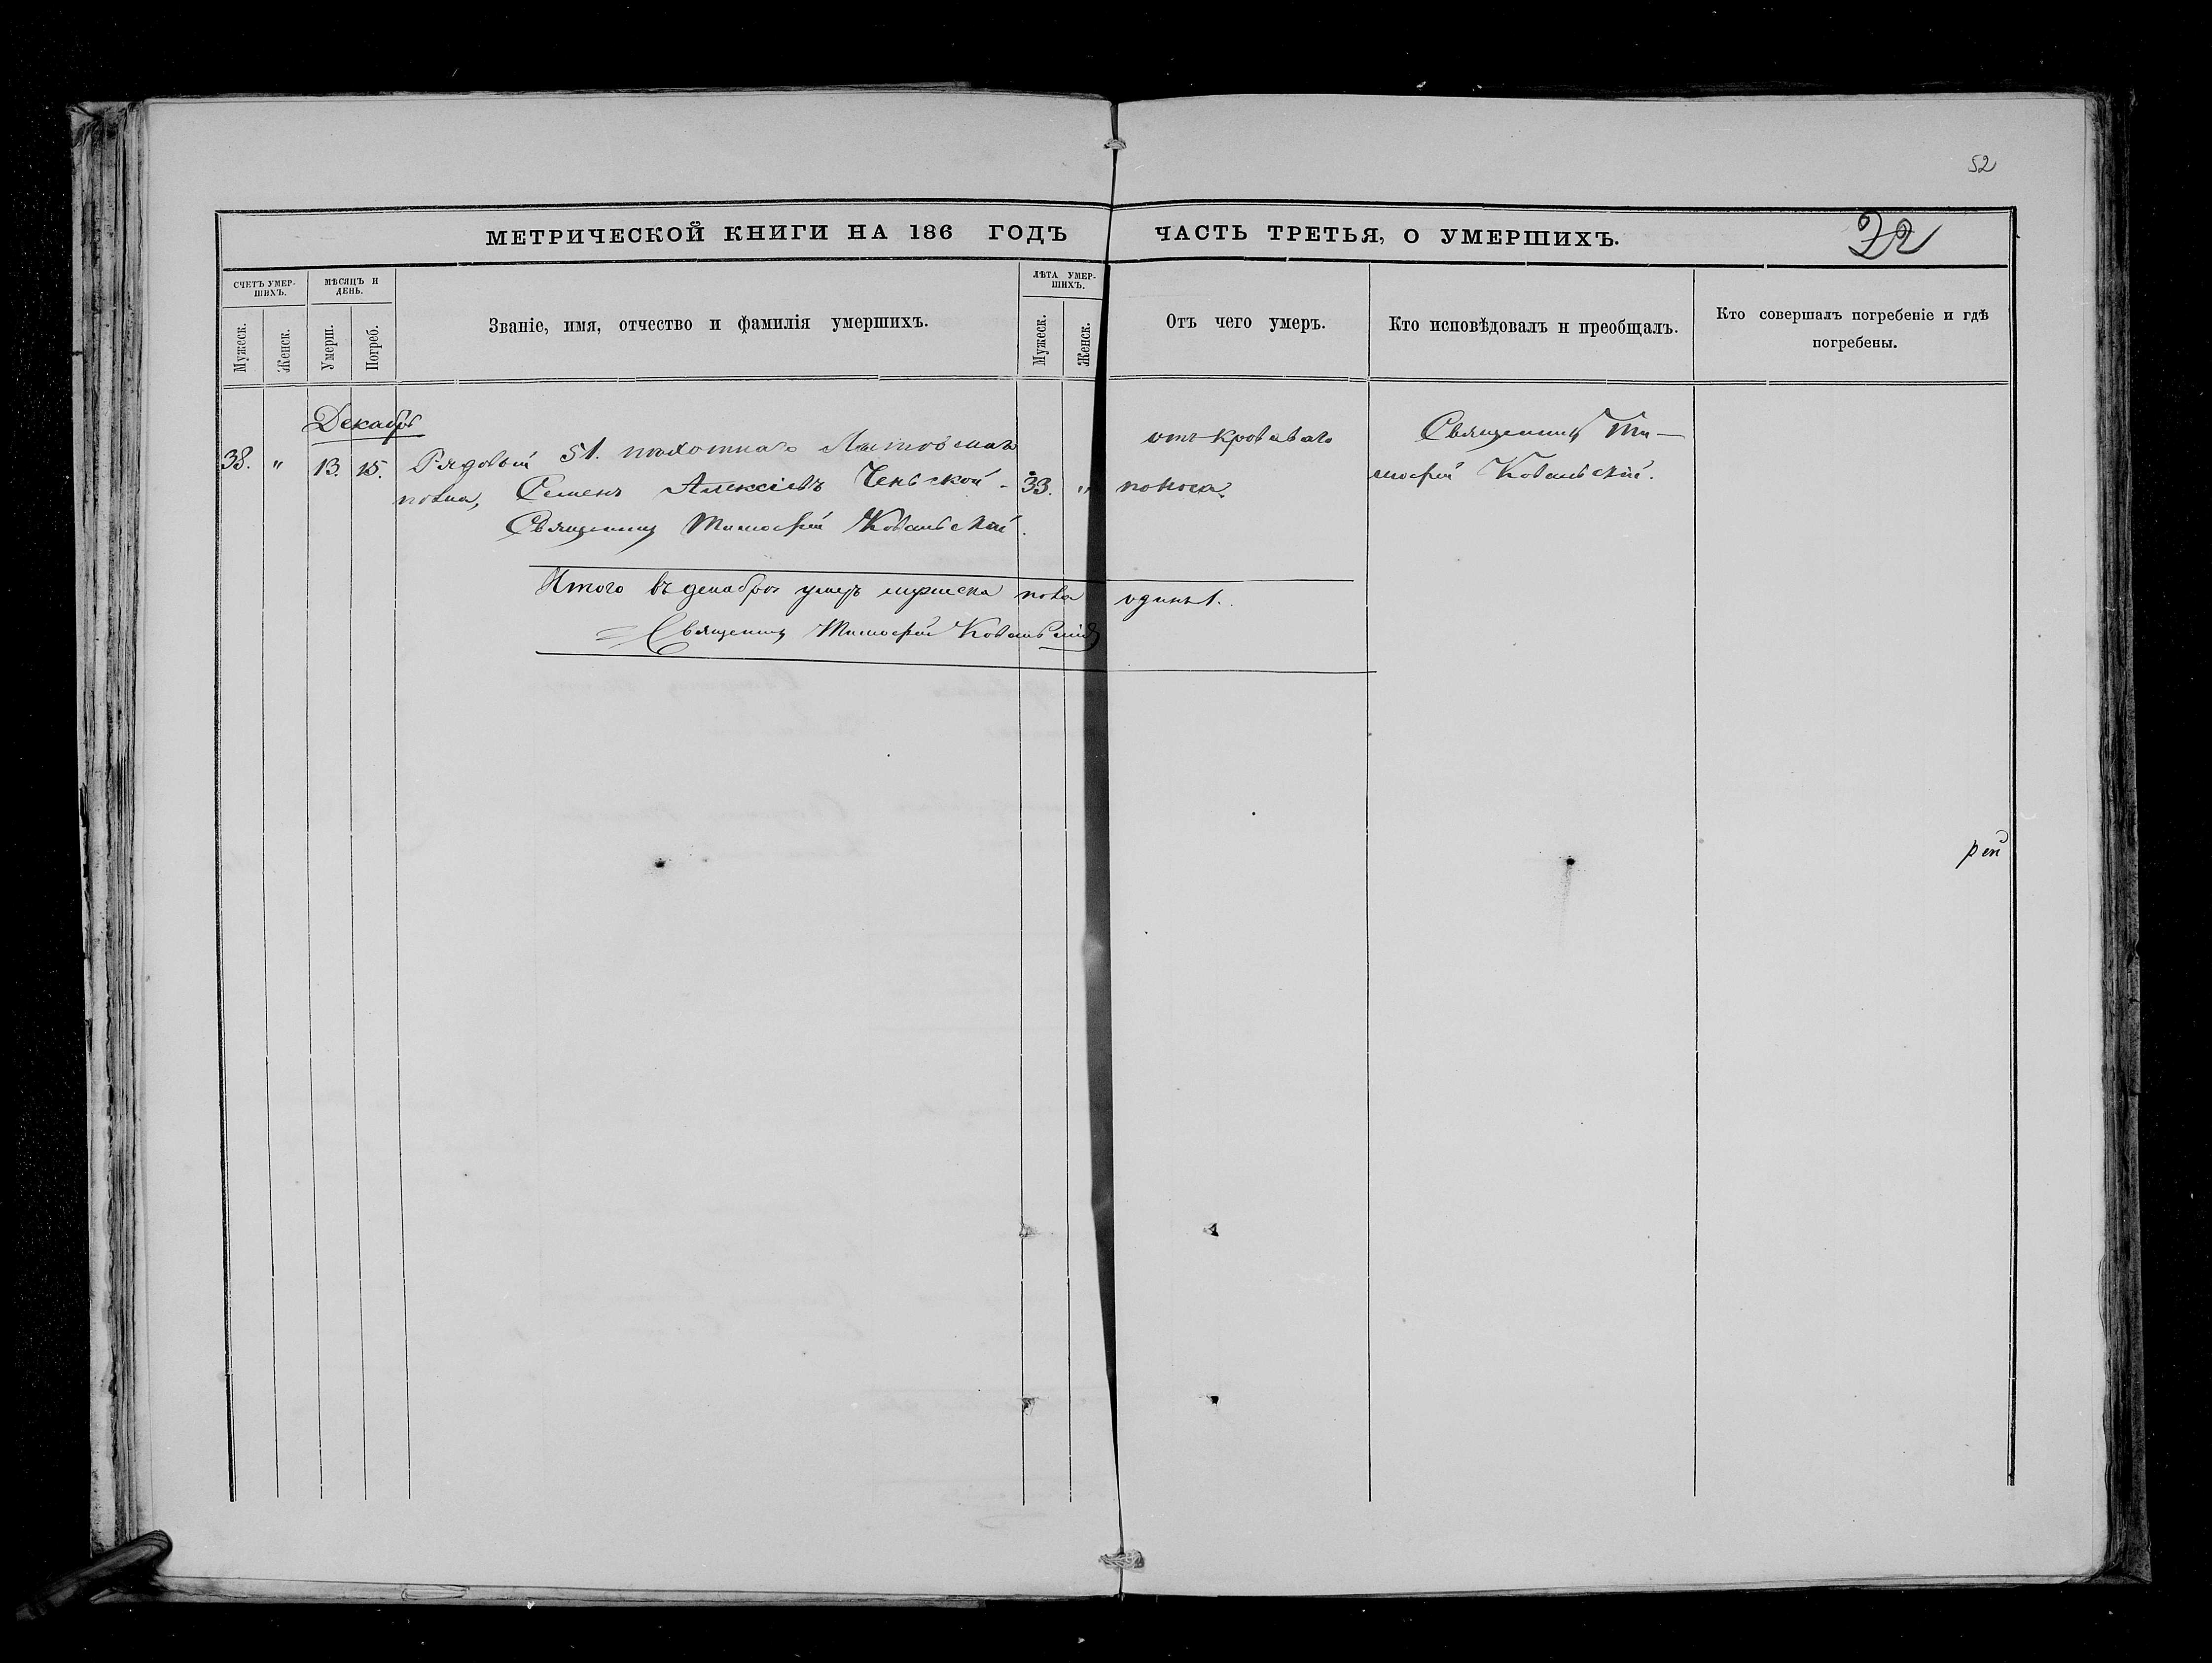 52
МЕТРИЧЕСКОЙ КНИГИ НА 186 ГОДЪ
ЧАСТЬ ТРЕТЬЯ, О УМЕРШИХЪ.
22
СЧЕТЪ УМЕР-
ШИХЪ.
МѢСЯЦЪ И
ДЕНЬ.
Званіе, имя, отчество и фамилія умершихъ.
ЛѢТА УМЕР-
ШИХЪ.
Отъ чего умеръ.
Кто исповѣдовалъ и преобщалъ.
Кто совершалъ погребеніе и гдѣ
погребены.
Мужеск.
Женск.
Умерш.
Погреб.
Мужеск.
Женск.
Декабрь
38. " 13. 15. Рядовый 51. пѣхотнаго Литовскаго
полка, Семенъ Алексіевъ - 33. "
Священникъ Тимофей Ковальскій.
отъ кроваваго
поноса.
Священникъ Ти-
мофей Ковальскій.
Итого въ декабрѣ умеръ мужеска пола одинъ 1.
Священникъ Тимофей Ковальскій
рей